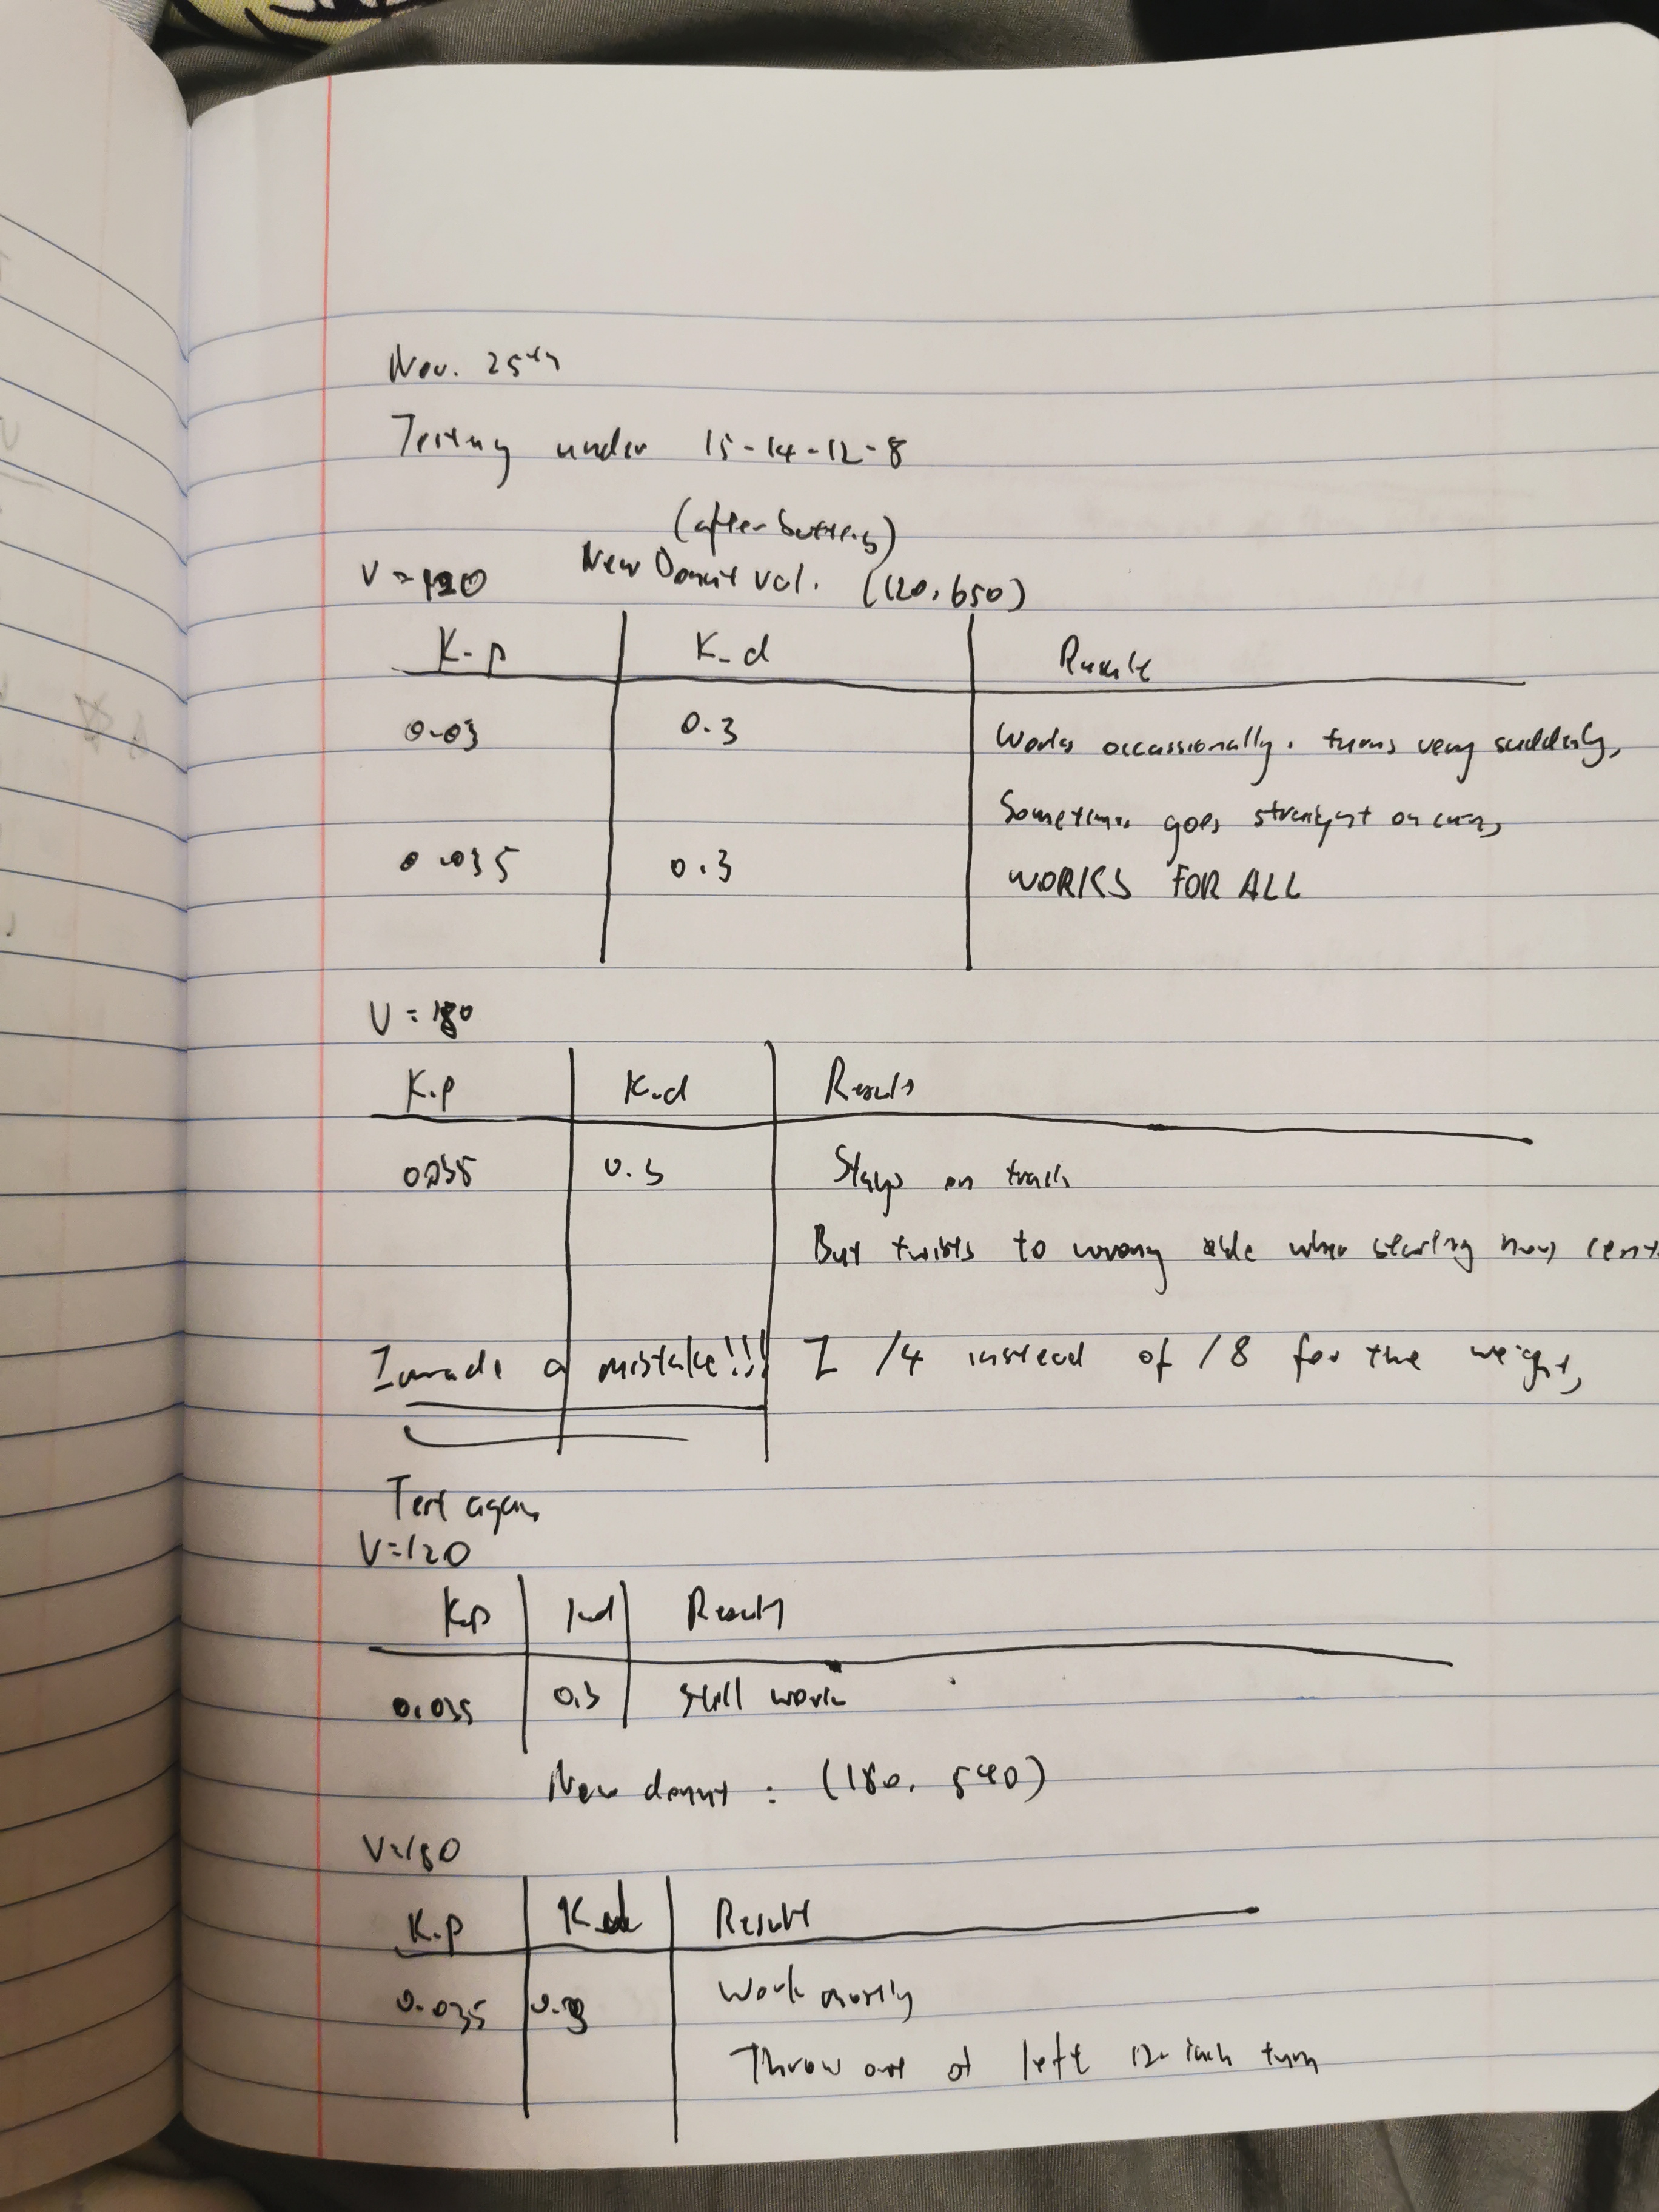 Nov. 25th
Testing under 15-14-12-8
(after battery)
V=120 New Donut val. (120, 650)
K-p K-d Result
0.03 0.3 Works occassionally. turns very suddenly,
Sometimes goes straight on
0.035 0.3 WORKS FOR ALL
V=180
K-p K-d Results
0.035 0.3 Stays on track
But twists to wrong side when starting
I made a mistake!!! I /4 instead of /8 for the weight,
Test again
V=120
K-p K-d Result
0.035 0.3 still work
New donut: (180, 540)
V=180
K-p K-d Result
0.035 0.3 Work mostly
Throw out at left 12-inch turn